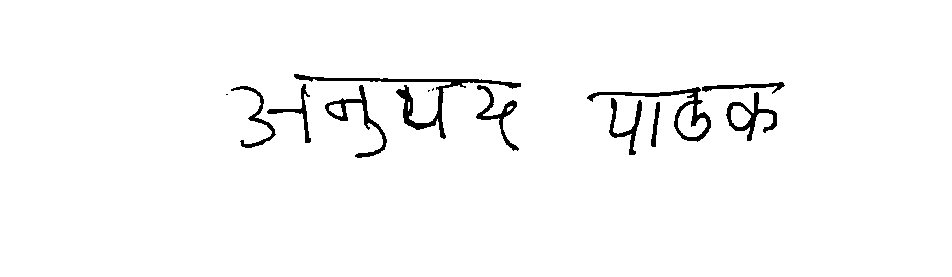 अनुपद पाठक